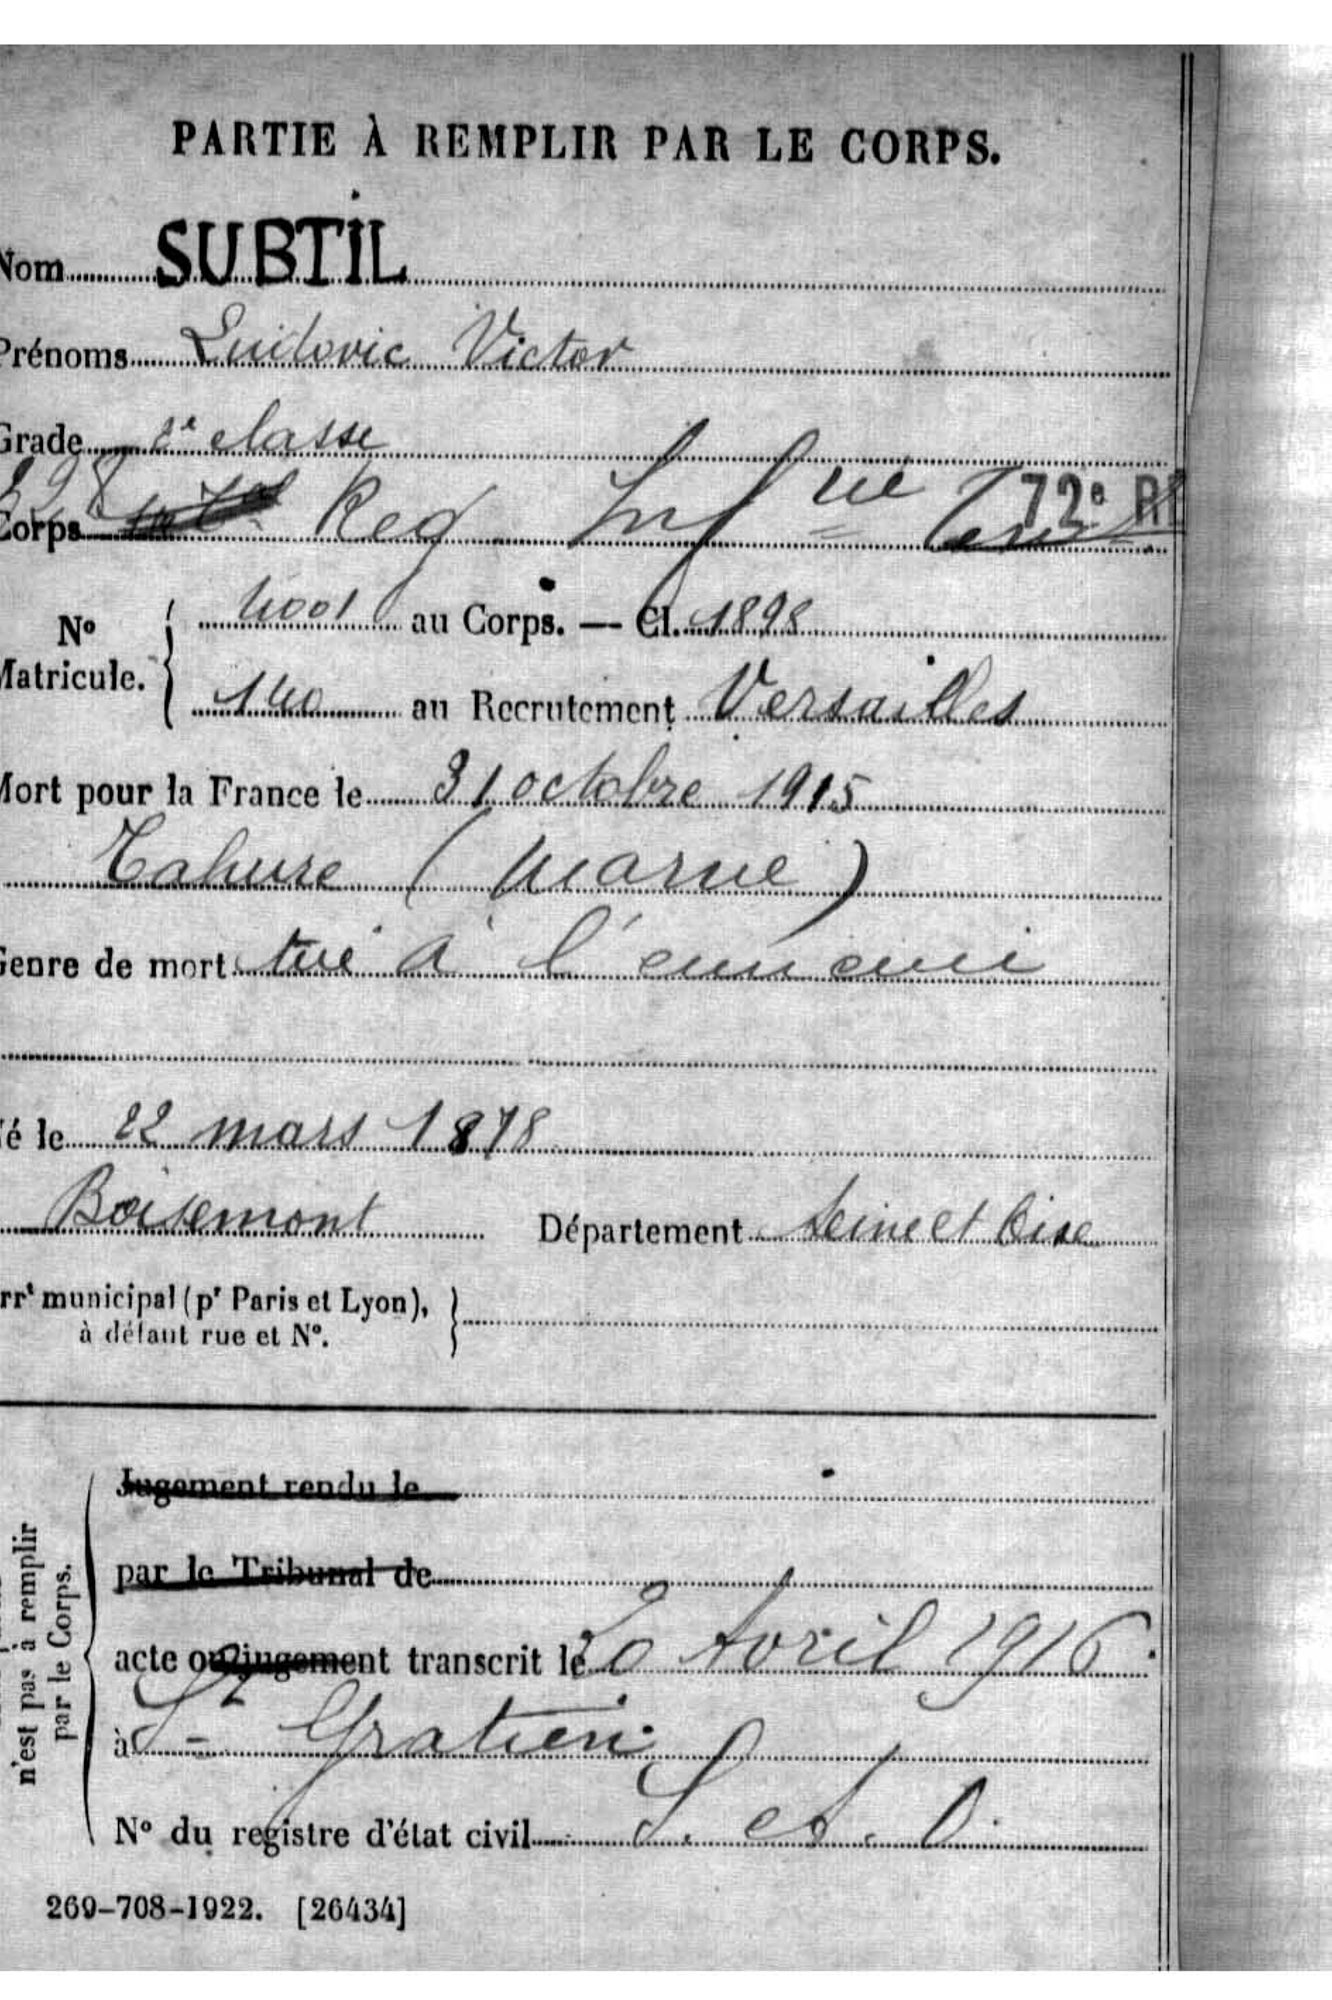 PARTIE À REMPLIR PAR LE CORPS.
Nom SUBTIL
Prénoms Ludovic Victor
Grade 2e classe
328
Corps Reg Infrie Terr 72e RI
4001 au Corps. — Cl. 1898
No
Matricule.
140 au Recrutement Versailles
Mort pour la France le 31 octobre 1915
Tahure (Marne)
Genre de mort tué à l'ennemi
Né le 22 mars 1878
Boisemont Département Seine et Oise
Arrt municipal (pr Paris et Lyon),
à défaut rue et No.
Jugement rendu le
par le Tribunal de
acte ou jugement transcrit le 20 Avril 1916.
à St Gratien
No du registre d'état civil S. et. O.
n'est pas à remplir
par le Corps.
269-708-1922. [26434]